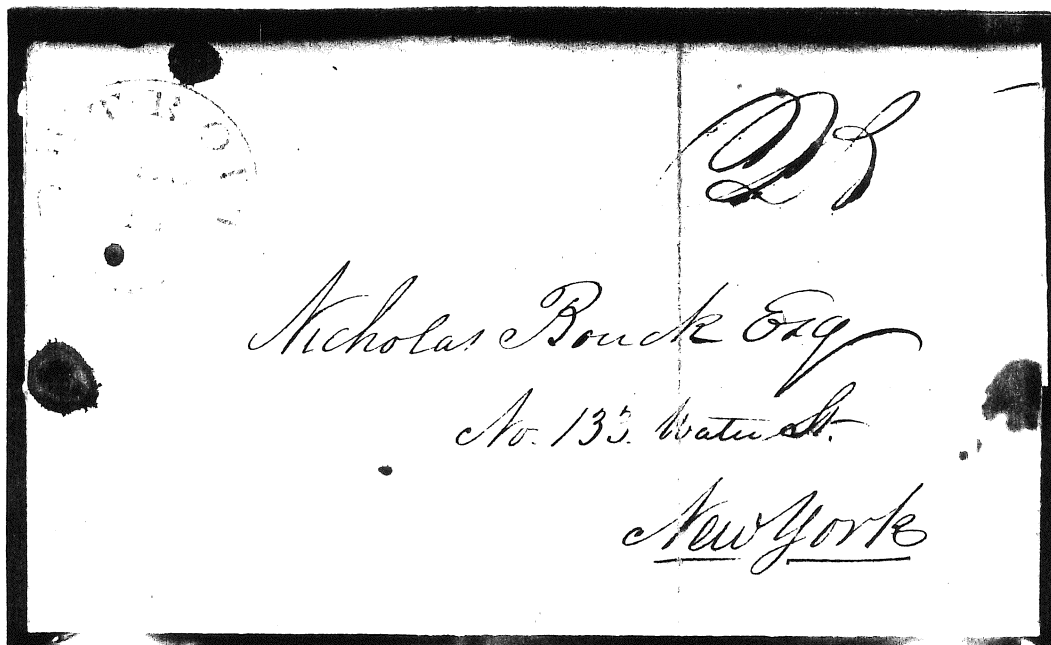 Nicholas Bouck Esq
No. 133 Water St.
New York